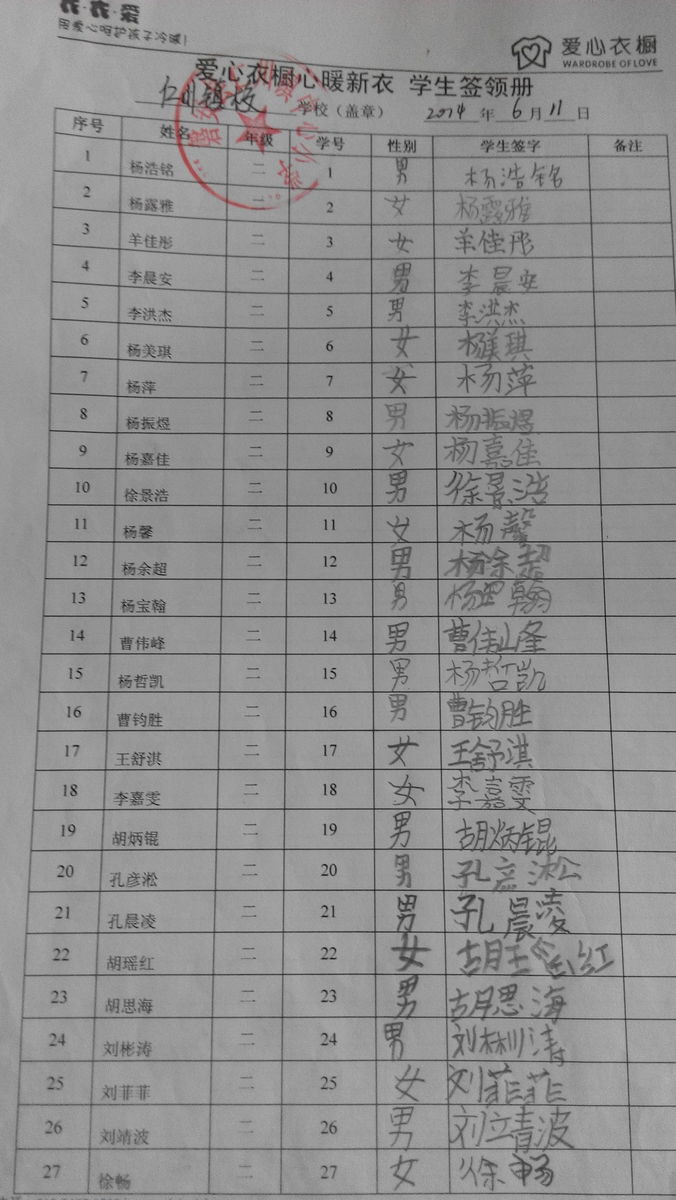 衣·衣·爱
用爱心呵护孩子冷暖！
爱心衣橱
WARDROBE OF LOVE
爱心衣橱心暖新衣 学生签领册
仁川镇校 学校（盖章） 2014 年 6 月 11 日
序号 姓名 年级 学号 性别 学生签字 备注
1 杨浩铭 二 1 男 杨浩铭
2 杨露雅 二 2 女 杨露雅
3 羊佳彤 二 3 女 羊佳彤
4 李晨安 二 4 男 李晨安
5 李洪杰 二 5 男 李洪杰
6 杨美琪 二 6 女 杨美琪
7 杨萍 二 7 女 杨萍
8 杨振煜 二 8 男 杨振煜
9 杨嘉佳 二 9 女 杨嘉佳
10 徐景浩 二 10 男 徐景浩
11 杨馨 二 11 女 杨馨
12 杨余超 二 12 男 杨余超
13 杨宝翰 二 13 男 杨宝翰
14 曹伟峰 二 14 男 曹伟峰
15 杨哲凯 二 15 男 杨哲凯
16 曹钧胜 二 16 男 曹钧胜
17 王舒淇 二 17 女 王舒淇
18 李嘉雯 二 18 女 李嘉雯
19 胡炳锟 二 19 男 胡炳锟
20 孔彦淞 二 20 男 孔彦淞
21 孔晨凌 二 21 男 孔晨凌
22 胡瑶红 二 22 女 胡瑶红
23 胡思海 二 23 男 胡思海
24 刘彬涛 二 24 男 刘彬涛
25 刘菲菲 二 25 女 刘菲菲
26 刘靖波 二 26 男 刘靖波
27 徐畅 二 27 女 徐畅